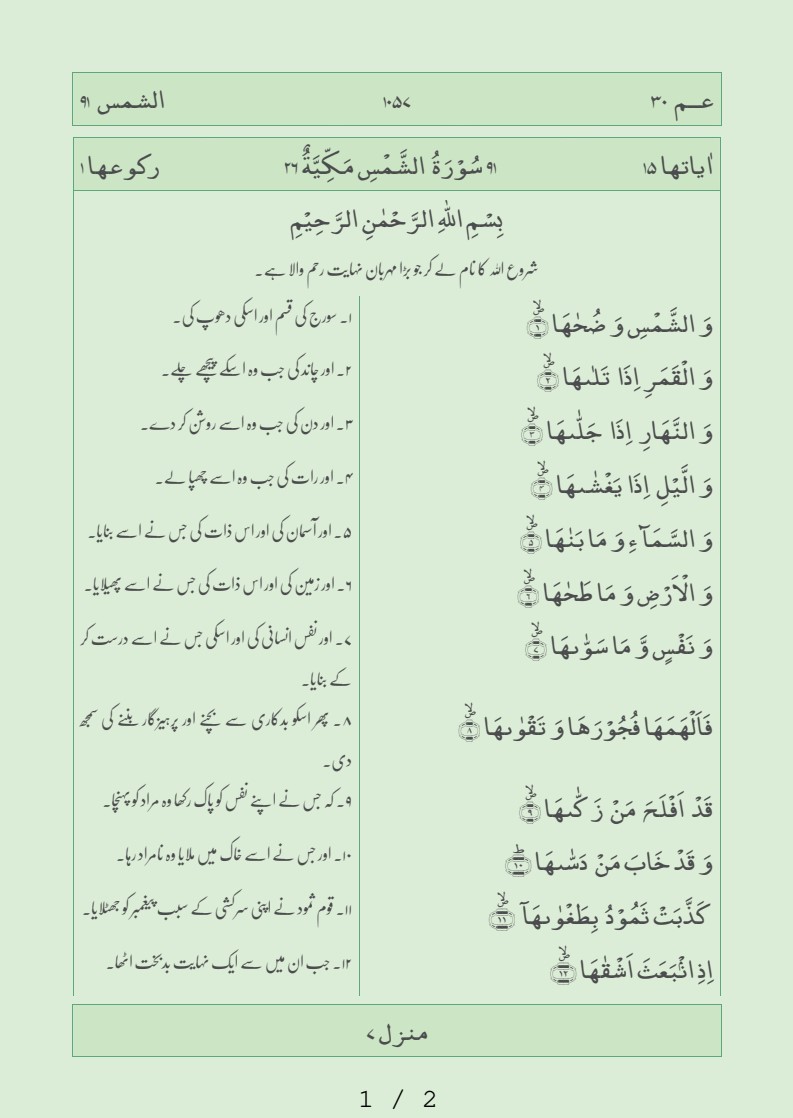 عـــم ۳۰ ۱۰۵۷ الشمس ۹۱
اٰیاتھا ۱۵ ۹۱ سُوْرَۃُ الشَّمْسِ مَکِّیَّۃٌ ۲۶ رکوعھا ۱
بِسْمِ اللّٰہِ الرَّحْمٰنِ الرَّحِیْمِ
شروع اللہ کا نام لے کر جو بڑا مہربان نہایت رحم والا ہے۔
وَ الشَّمْسِ وَ ضُحٰىهَا ۪ۙ﴿۱﴾ ۱۔ سورج کی قسم اور اسکی دھوپ کی۔
وَ الْقَمَرِ اِذَا تَلٰىهَا ۪ۙ﴿۲﴾ ۲۔ اور چاند کی جب وہ اسکے پیچھے چلے۔
وَ النَّهَارِ اِذَا جَلّٰىهَا ۪ۙ﴿۳﴾ ۳۔ اور دن کی جب وہ اسے روشن کر دے۔
وَ الَّیْلِ اِذَا یَغْشٰىهَا ۪ۙ﴿۴﴾ ۴۔ اور رات کی جب وہ اسے چھپا لے۔
وَ السَّمَآءِ وَ مَا بَنٰىهَا ۪ۙ﴿۵﴾ ۵۔ اور آسمان کی اور اس ذات کی جس نے اسے بنایا۔
وَ الْاَرْضِ وَ مَا طَحٰىهَا ۪ۙ﴿۶﴾ ۶۔ اور زمین کی اور اس ذات کی جس نے اسے پھیلایا۔
وَ نَفْسٍ وَّ مَا سَوّٰىهَا ۪ۙ﴿۷﴾ ۷۔ اور نفس انسانی کی اور اسکی جس نے اسے درست کر
کے بنایا۔
فَاَلْهَمَهَا فُجُوْرَهَا وَ تَقْوٰىهَا ۪ۙ﴿۸﴾ ۸۔ پھر اسکو بدکاری سے بچنے اور پرہیزگار بننے کی سمجھ
دی۔
قَدْ اَفْلَحَ مَنْ زَكّٰىهَا ۪ۙ﴿۹﴾ ۹۔ کہ جس نے اپنے نفس کو پاک رکھا وہ مراد کو پہنچا۔
وَ قَدْ خَابَ مَنْ دَسّٰىهَا ﴿ؕ۱۰﴾ ۱۰۔ اور جس نے اسے خاک میں ملایا وہ نامراد رہا۔
كَذَّبَتْ ثَمُوْدُ بِطَغْوٰىهَاۤ ۪ۙ﴿۱۱﴾ ۱۱۔ قوم ثمود نے اپنی سرکشی کے سبب پیغمبر کو جھٹلایا۔
اِذِ انْۢبَعَثَ اَشْقٰىهَا ۪ۙ﴿۱۲﴾ ۱۲۔ جب ان میں سے ایک نہایت بدبخت اٹھا۔
منزل ۷
1 / 2